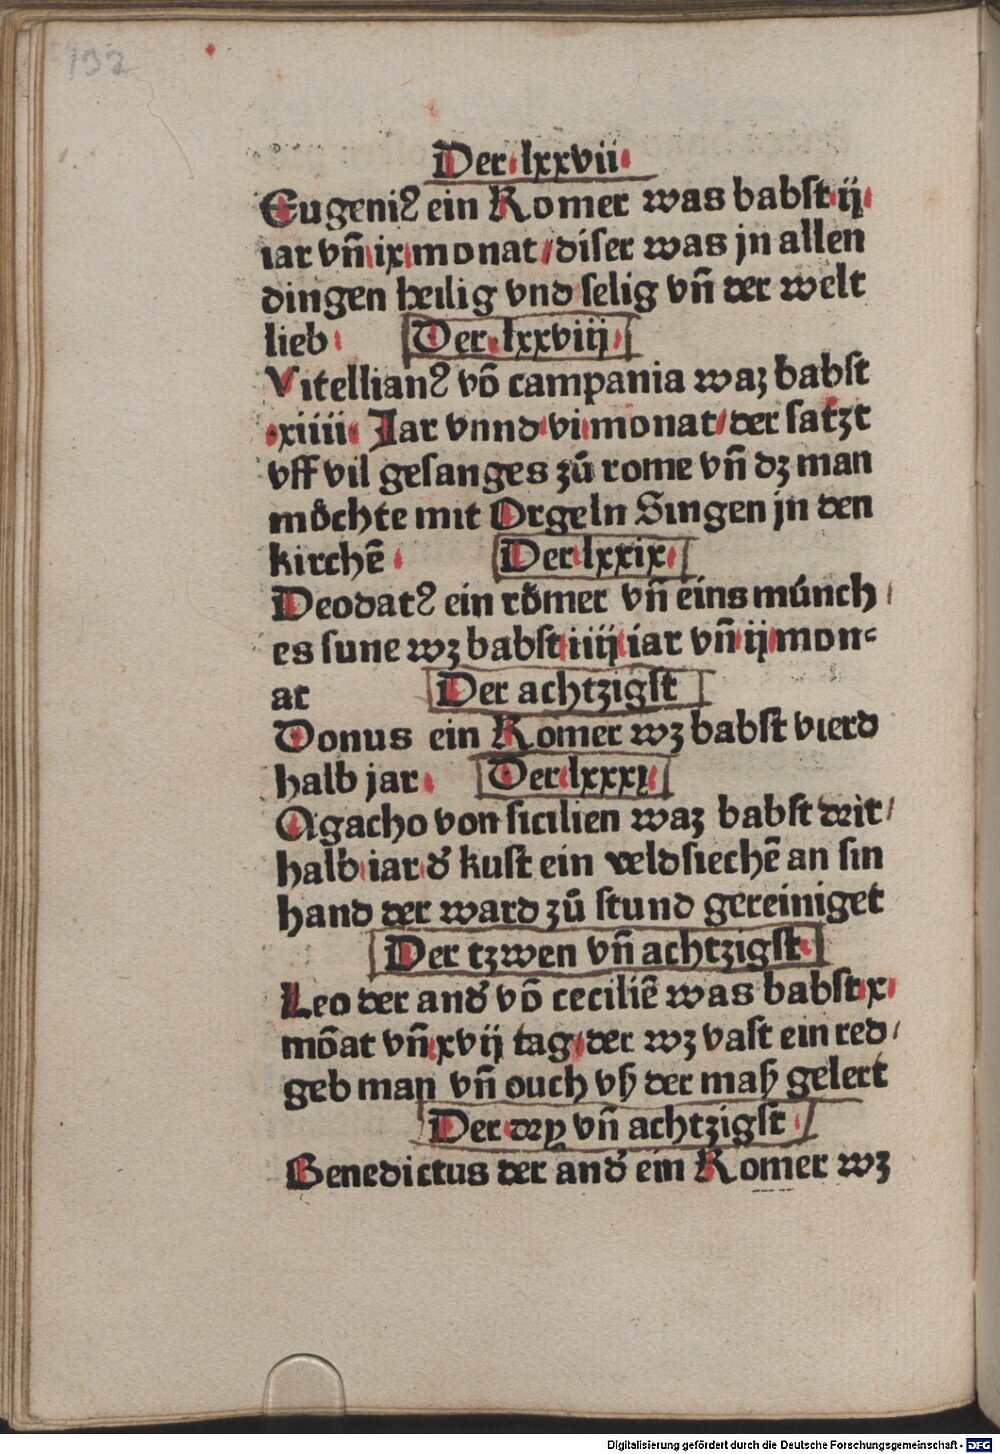 132
Der lxxvii
Eugeniꝰ ein Romer was babst ij
iar vn̄ ix monat / diser was jn allen
dingen heilig vnd selig vn̄ der welt
lieb Der lxxviij
Vitellianꝰ vō campania waz babst
xiiii Jar vnnd vi monat / der satzt
vff vil gesanges zů rome vn̄ dz man
mȯchte mit Orgeln Singen jn den
kirchē Der lxxix
Deodatꝰ ein rȯmer vn̄ eins múnch /
es sune wz babst iiij iar vn̄ ij mon⸗
at Der achtzigst
Donus ein Romer wz babst vierd
halb jar Der lxxxi
Agacho von sicilien waz babst drit /
halb iar dˀ kust ein veldsiechē an sin
hand der ward zů stund gereiniget
Der tzwen vn̄ achtzigst
Leo der andˀ vō ceciliē was babst x
mōat vn̄ xvij tag / der wz vast ein red /
geb man vn̄ ouch vß der maß gelert
Der dry vn̄ achtzigst
Benedictus der andˀ ein Romer wz
Digitalisierung gefördert durch die Deutsche Forschungsgemeinschaft - DFG